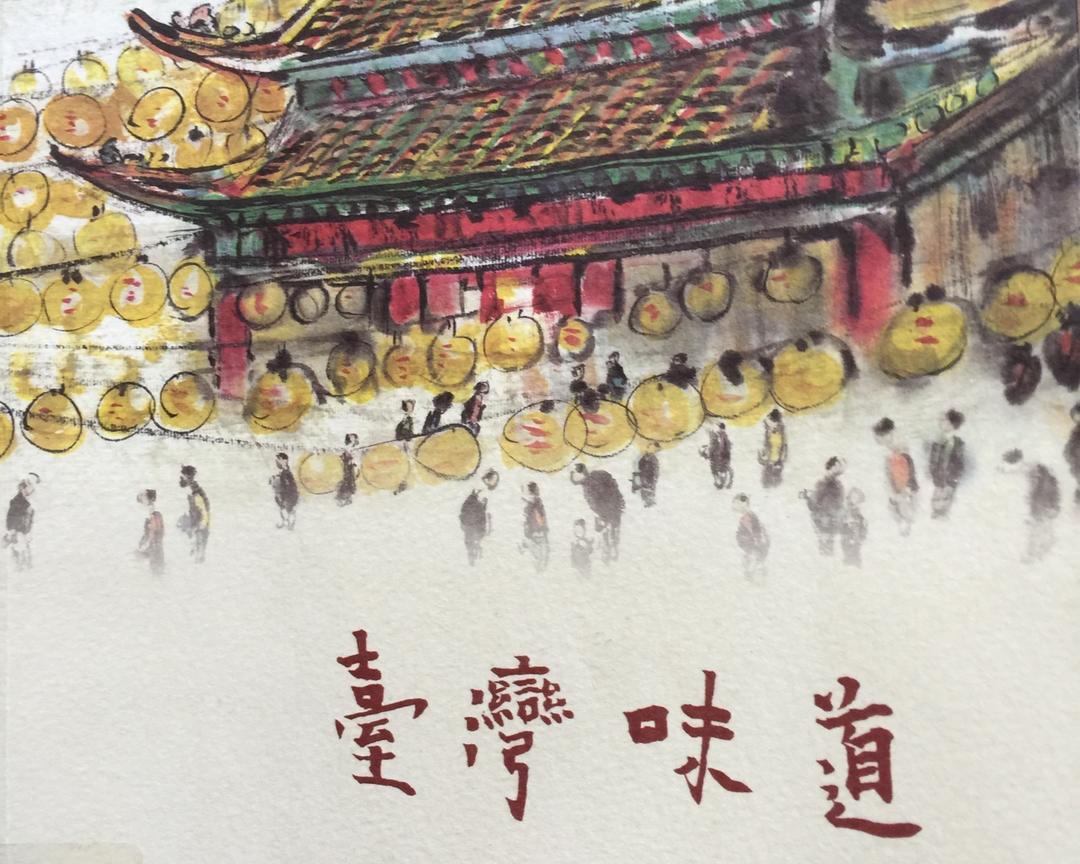 臺灣味道